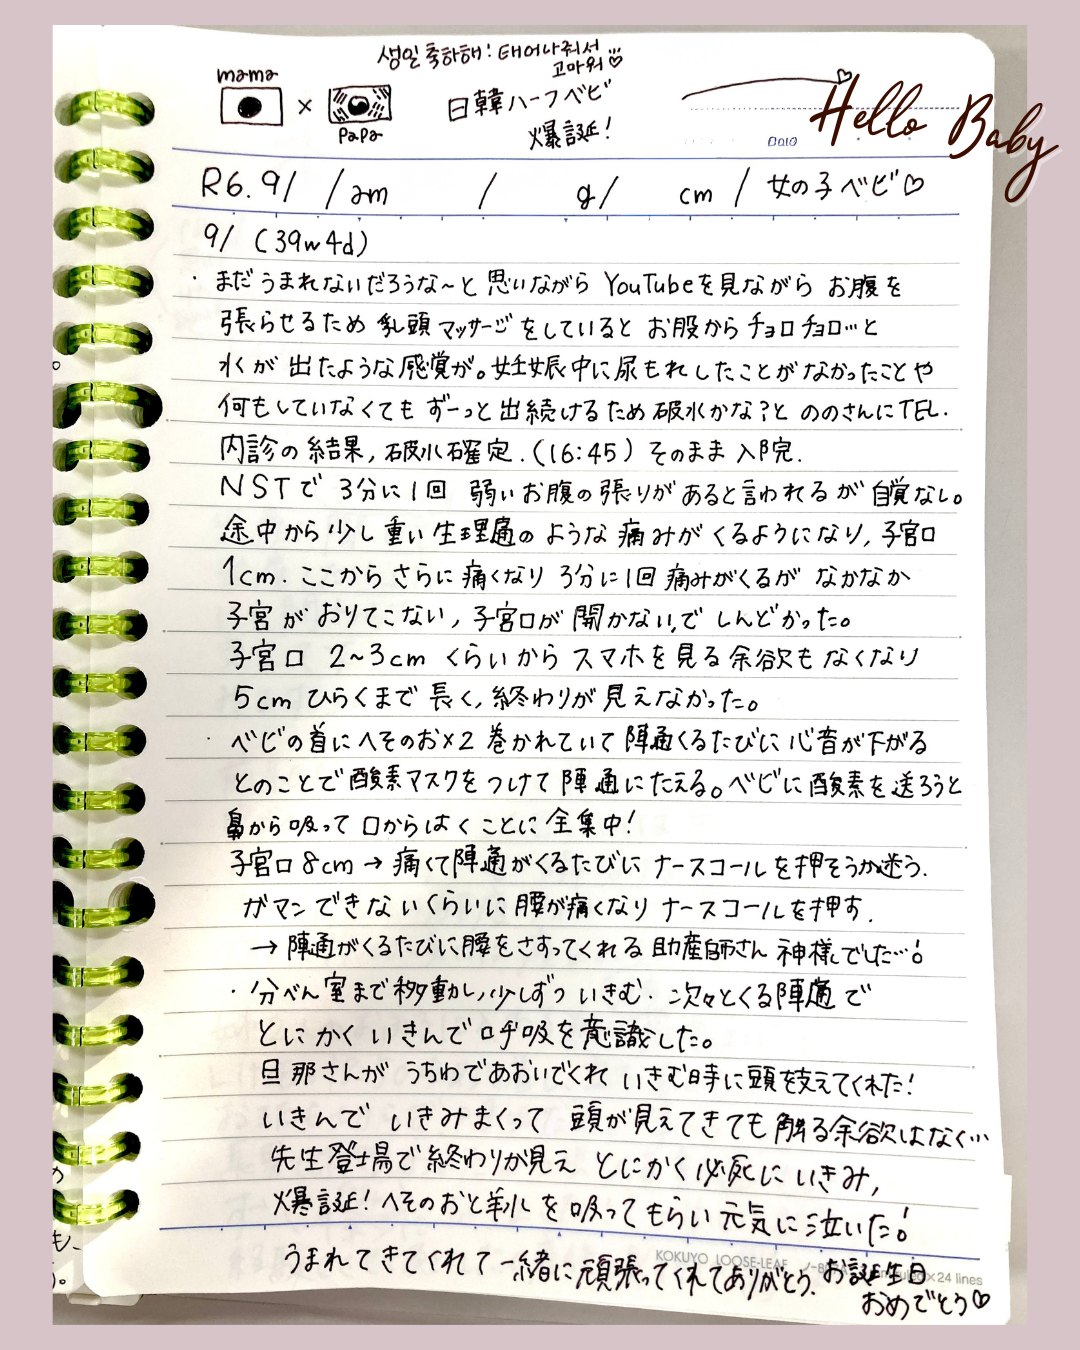 생일 축하해! 태어나줘서
고마워♡
mama
×
papa
日韓ハーフベビ
爆誕!
Hello Baby
Date
R6.9/ /am / g/ cm / 女の子ベビ♡
9/ (39w4d)
・まだうまれないだろうな〜と思いながら YouTubeを見ながら お腹を
張らせるため 乳頭マッサージをしていると お股からチョロチョロ…と
水が出たような感覚が。妊娠中に尿もれしたことがなかったことや
何もしていなくても ずーっと出続けるため 破水かな?と ののさんにTEL.
内診の結果, 破水確定.(16:45) そのまま入院.
NSTで 3分に1回 弱いお腹の張りがあると言われるが 自覚なし。
途中から少し重い生理痛のような痛みがくるようになり, 子宮口
1cm. ここからさらに痛くなり 3分に1回痛みがくるが なかなか
子宮がおりてこない, 子宮口が開かない,でしんどかった。
子宮口 2~3cm くらいからスマホを見る余欲もなくなり
5cmひらくまで長く, 終わりが見えなかった。
・ベビの首にへそのお×2 巻かれていて 陣痛くるたびに心音が下がる
とのことで酸素マスクをつけて陣痛にたえる。ベビに酸素を送ろうと
鼻から吸って口からはくことに全集中!
子宮口8cm→痛くて陣痛がくるたびに ナースコールを押そうか迷う.
ガマンできないくらいに腰が痛くなり ナースコールを押す.
→陣痛がくるたびに腰をさすってくれる助産師さん神様でした…!
・分べん室まで移動し, 少しずついきむ. 次々とくる陣痛で
とにかくいきんで呼吸を意識した。
旦那さんが うちわであおいでくれ いきむ時に頭を支えてくれた!
いきんで いきみまくって 頭が見えてきても触る余欲はなく…
先生登場で終わりが見え とにかく必死にいきみ,
爆誕! へそのおと羊水を吸ってもらい元気に泣いた!
うまれてきてくれて一緒に頑張ってくれてありがとう. お誕生日
おめでとう♡
KOKUYO LOOSE-LEAF
×24 lines